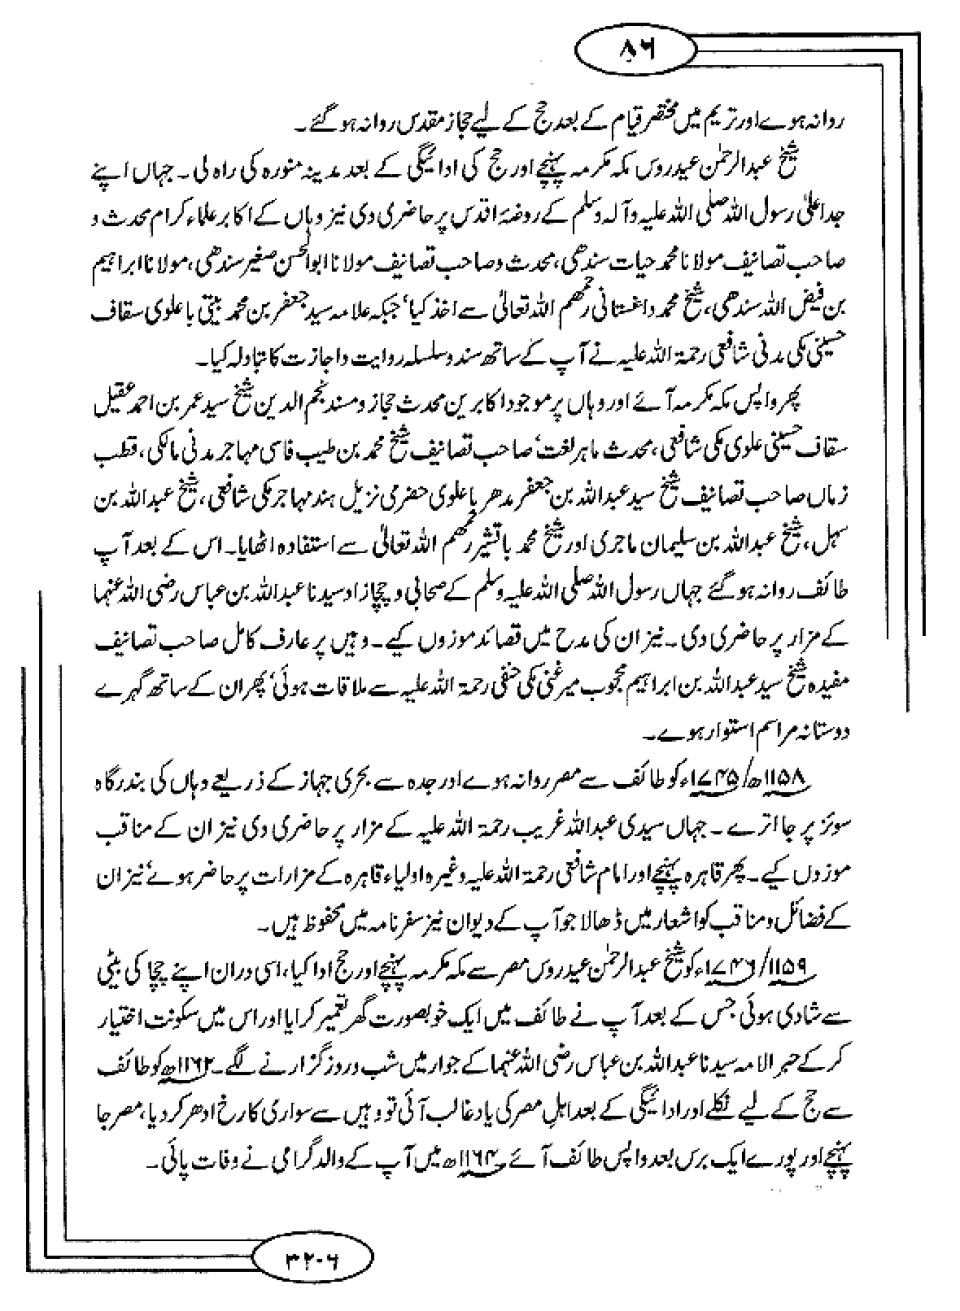 ۸۶
روانہ ہوے اور تریم میں مختصر قیام کے بعد حج کے لیے حجاز مقدس روانہ ہوگئے۔
شیخ عبدالرحمٰن عیدروس مکہ مکرمہ پہنچے اور حج کی ادائیگی کے بعد مدینہ منورہ کی راہ لی۔ جہاں اپنے
جد اعلیٰ رسول اللہ صلی اللہ علیہ وآلہ وسلم کے روضۂ اقدس پر حاضری دی نیز وہاں کے اکابر علماء کرام محدث و
صاحب تصانیف مولانا محمد حیات سندھی، محدث و صاحب تصانیف مولانا ابوالحسن صغیر سندھی، مولانا ابراہیم
بن فیض اللہ سندھی، شیخ محمد داغستانی رحمھم اللہ تعالیٰ سے اخذ کیا' جبکہ علامہ سید جعفر بن محمد بیتی باعلوی سقاف
حسینی مکی مدنی شافعی رحمۃ اللہ علیہ نے آپ کے ساتھ سند و سلسلہ روایت و اجازت کا تبادلہ کیا۔
پھر واپس مکہ مکرمہ آئے اور وہاں پر موجود اکابرین محدث حجاز و مسند نجم الدین شیخ سید عمر بن احمد عقیل
سقاف حسینی علوی مکی شافعی، محدث ماہر لغت' صاحب تصانیف شیخ محمد بن طیب فاسی مہاجر مدنی مالکی، قطب
زماں صاحب تصانیف شیخ سید عبداللہ بن جعفر مدھر باعلوی حضرمی نزیل ہند مہاجر مکی شافعی، شیخ عبداللہ بن
سہل، شیخ عبداللہ بن سلیمان ماجری اور شیخ محمد باقشیر رحمھم اللہ تعالیٰ سے استفادہ اٹھایا۔ اس کے بعد آپ
طائف روانہ ہوگئے جہاں رسول اللہ صلی اللہ علیہ وسلم کے صحابی و چچازاد سیدنا عبداللہ بن عباس رضی اللہ عنہما
کے مزار پر حاضری دی۔ نیز ان کی مدح میں قصائد موزوں کیے۔ وہیں پر عارف کامل صاحب تصانیف
مفیدہ شیخ سید عبداللہ بن ابراہیم محجوب میرغنی مکی حنفی رحمۃ اللہ علیہ سے ملاقات ہوئی' پھر ان کے ساتھ گہرے
دوستانہ مراسم استوار ہوے۔
۱۱۵۸ھ/۱۷۴۵ء کو طائف سے مصر روانہ ہوے اور جدہ سے بحری جہاز کے ذریعے وہاں کی بندرگاہ
سوئز پر جا اترے۔ جہاں سیدی عبداللہ غریب رحمۃ اللہ علیہ کے مزار پر حاضری دی نیز ان کے مناقب
موزوں کیے۔ پھر قاہرہ پہنچے اور امام شافعی رحمۃ اللہ علیہ وغیرہ اولیاء قاہرہ کے مزارات پر حاضر ہوئے' نیز ان
کے فضائل و مناقب کو اشعار میں ڈھالا جو آپ کے دیوان نیز سفرنامہ میں محفوظ ہیں۔
۱۱۵۹/۱۷۴۶ء کو شیخ عبدالرحمٰن عیدروس مصر سے مکہ مکرمہ پہنچے اور حج ادا کیا، اسی دران اپنے چچا کی بیٹی
سے شادی ہوئی جس کے بعد آپ نے طائف میں ایک خوبصورت گھر تعمیر کرایا اور اس میں سکونت اختیار
کرکے حبر الامہ سیدنا عبداللہ بن عباس رضی اللہ عنہما کے جوار میں شب و روز گزارنے لگے۔ ۱۱۶۲ھ کو طائف
سے حج کے لیے نکلے اور ادائیگی کے بعد اہلِ مصر کی یاد غالب آئی تو وہیں سے سواری کا رخ ادھر کردیا، مصر جا
پہنچے اور پورے ایک برس بعد واپس طائف آئے ۱۱۶۴ھ میں آپ کے والد گرامی نے وفات پائی۔
۳۲۰۶